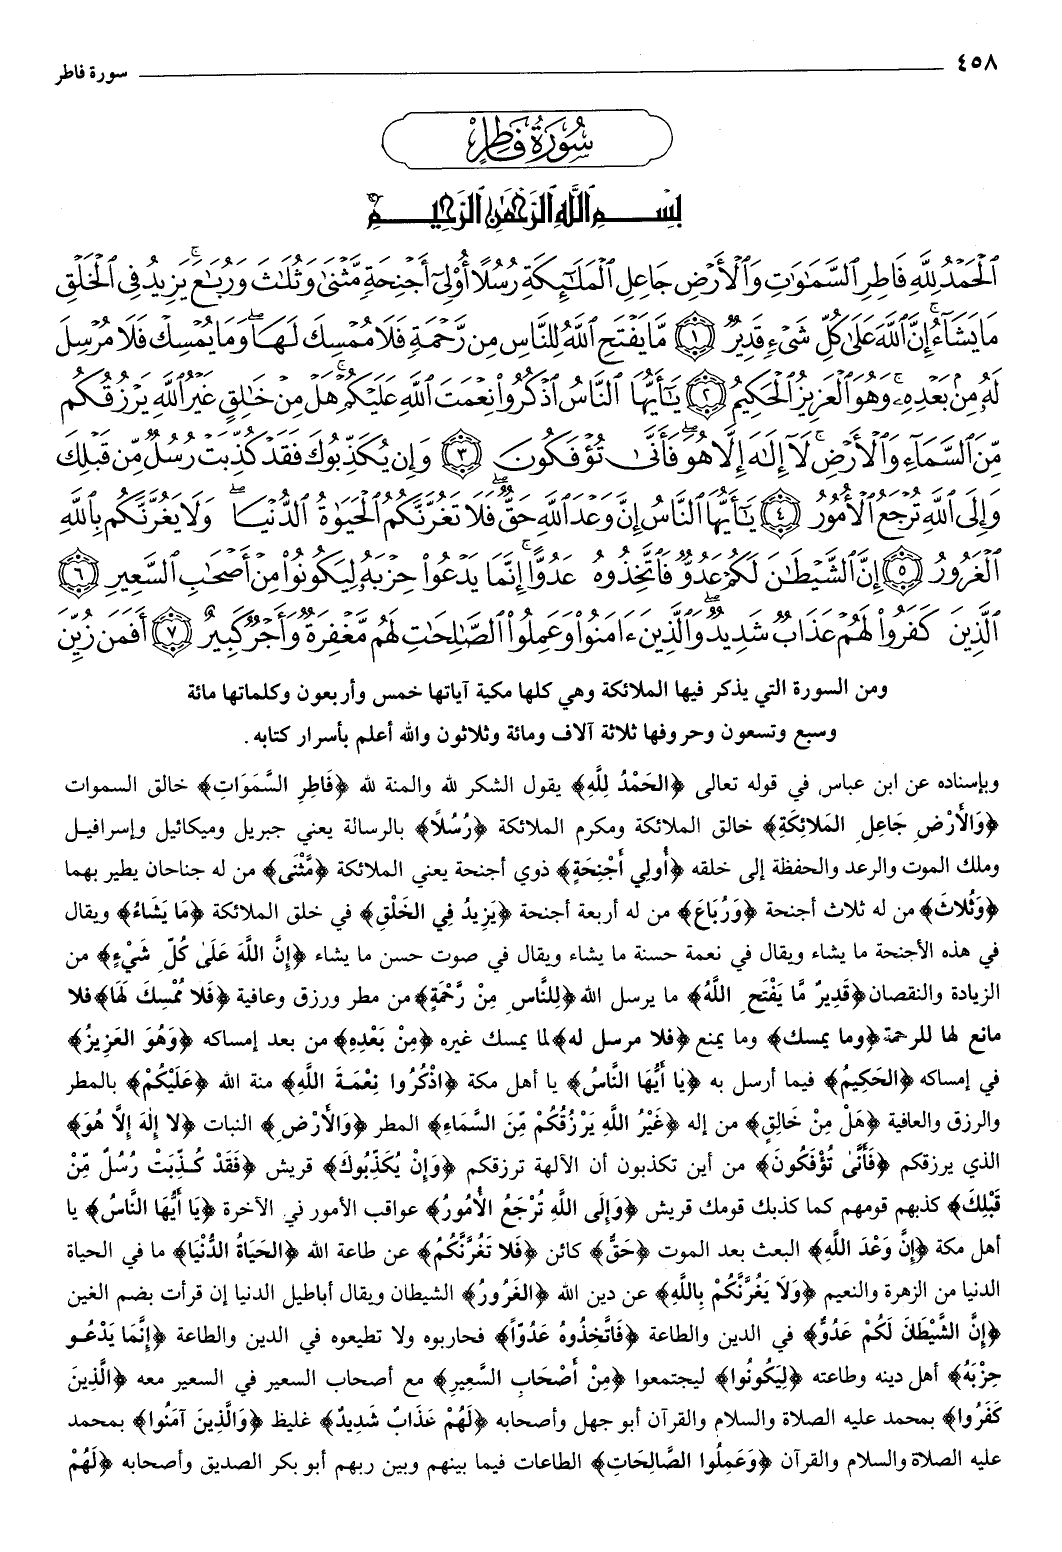 ٤٥٨ سورة فاطر
سُورَةُ فَاطِرٍ
بِسْمِ ٱللَّهِ ٱلرَّحْمَٰنِ ٱلرَّحِيمِ
ٱلْحَمْدُ لِلَّهِ فَاطِرِ ٱلسَّمَٰوَٰتِ وَٱلْأَرْضِ جَاعِلِ ٱلْمَلَٰٓئِكَةِ رُسُلًا أُو۟لِىٓ أَجْنِحَةٍ مَّثْنَىٰ وَثُلَٰثَ وَرُبَٰعَ ۚ يَزِيدُ فِى ٱلْخَلْقِ
مَا يَشَآءُ ۚ إِنَّ ٱللَّهَ عَلَىٰ كُلِّ شَىْءٍ قَدِيرٌ ﴿١﴾ مَّا يَفْتَحِ ٱللَّهُ لِلنَّاسِ مِن رَّحْمَةٍ فَلَا مُمْسِكَ لَهَا ۖ وَمَا يُمْسِكْ فَلَا مُرْسِلَ
لَهُۥ مِنۢ بَعْدِهِۦ ۚ وَهُوَ ٱلْعَزِيزُ ٱلْحَكِيمُ ﴿٢﴾ يَٰٓأَيُّهَا ٱلنَّاسُ ٱذْكُرُوا۟ نِعْمَتَ ٱللَّهِ عَلَيْكُمْ ۚ هَلْ مِنْ خَٰلِقٍ غَيْرُ ٱللَّهِ يَرْزُقُكُم
مِّنَ ٱلسَّمَآءِ وَٱلْأَرْضِ ۚ لَآ إِلَٰهَ إِلَّا هُوَ ۖ فَأَنَّىٰ تُؤْفَكُونَ ﴿٣﴾ وَإِن يُكَذِّبُوكَ فَقَدْ كُذِّبَتْ رُسُلٌ مِّن قَبْلِكَ
وَإِلَى ٱللَّهِ تُرْجَعُ ٱلْأُمُورُ ﴿٤﴾ يَٰٓأَيُّهَا ٱلنَّاسُ إِنَّ وَعْدَ ٱللَّهِ حَقٌّ ۖ فَلَا تَغُرَّنَّكُمُ ٱلْحَيَوٰةُ ٱلدُّنْيَا ۖ وَلَا يَغُرَّنَّكُم بِٱللَّهِ
ٱلْغَرُورُ ﴿٥﴾ إِنَّ ٱلشَّيْطَٰنَ لَكُمْ عَدُوٌّ فَٱتَّخِذُوهُ عَدُوًّا ۚ إِنَّمَا يَدْعُوا۟ حِزْبَهُۥ لِيَكُونُوا۟ مِنْ أَصْحَٰبِ ٱلسَّعِيرِ ﴿٦﴾
ٱلَّذِينَ كَفَرُوا۟ لَهُمْ عَذَابٌ شَدِيدٌ ۖ وَٱلَّذِينَ ءَامَنُوا۟ وَعَمِلُوا۟ ٱلصَّٰلِحَٰتِ لَهُم مَّغْفِرَةٌ وَأَجْرٌ كَبِيرٌ ﴿٧﴾ أَفَمَن زُيِّنَ
ومن السورة التي يذكر فيها الملائكة وهي كلها مكية آياتها خمس وأربعون وكلماتها مائة
وسبع وتسعون وحروفها ثلاثة آلاف ومائة وثلاثون والله أعلم بأسرار كتابه.
وبإسناده عن ابن عباس في قوله تعالى ﴿الحَمْدُ لِلَّهِ﴾ يقول الشكر لله والمنة لله ﴿فَاطِرِ السَّمَوَاتِ﴾ خالق السموات
﴿وَالأَرْضِ جَاعِلِ المَلائِكَةِ﴾ خالق الملائكة ومكرم الملائكة ﴿رُسُلًا﴾ بالرسالة يعني جبريل وميكائيل وإسرافيل
وملك الموت والرعد والحفظة إلى خلقه ﴿أُولِي أَجْنِحَةٍ﴾ ذوي أجنحة يعني الملائكة ﴿مَّثْنَى﴾ من له جناحان يطير بهما
﴿وَثُلاثَ﴾ من له ثلاث أجنحة ﴿وَرُبَاعَ﴾ من له أربعة أجنحة ﴿يَزِيدُ فِي الخَلْقِ﴾ في خلق الملائكة ﴿مَا يَشَاءُ﴾ ويقال
في هذه الأجنحة ما يشاء ويقال في نعمة حسنة ما يشاء ويقال في صوت حسن ما يشاء ﴿إِنَّ اللَّهَ عَلَىٰ كُلِّ شَيْءٍ﴾ من
الزيادة والنقصان﴿قَدِيرٌ مَّا يَفْتَحِ اللَّهُ﴾ ما يرسل الله ﴿لِلنَّاسِ مِنْ رَّحْمَةٍ﴾من مطر ورزق وعافية ﴿فَلا مُمْسِكَ لَهَا﴾فلا
مانع لها للرحمة﴿وما يمسك﴾ وما يمنع ﴿فلا مرسل له﴾لما يمسك غيره ﴿مِنْ بَعْدِهِ﴾ من بعد إمساكه ﴿وَهُوَ العَزِيزُ﴾
في إمساكه ﴿الحَكِيمُ﴾ فيما أرسل به ﴿يَا أَيُّهَا النَّاسُ﴾ يا أهل مكة ﴿اذْكُرُوا نِعْمَةَ اللَّهِ﴾ منة الله ﴿عَلَيْكُمْ﴾ بالمطر
والرزق والعافية ﴿هَلْ مِنْ خَالِقٍ﴾ من إله ﴿غَيْرُ اللَّهِ يَرْزُقُكُمْ مِّنَ السَّمَاءِ﴾ المطر ﴿وَالأَرْضِ﴾ النبات ﴿لا إِلَهَ إِلَّا هُوَ﴾
الذي يرزقكم ﴿فَأَنَّىٰ تُؤْفَكُونَ﴾ من أين تكذبون أن الآلهة ترزقكم ﴿وَإِنْ يُكَذِّبُوكَ﴾ قريش ﴿فَقَدْ كُذِّبَتْ رُسُلٌ مِّنْ
قَبْلِكَ﴾ كذبهم قومهم كما كذبك قومك قريش ﴿وَإِلَى اللَّهِ تُرْجَعُ الأُمُورُ﴾ عواقب الأمور في الآخرة ﴿يَا أَيُّهَا النَّاسُ﴾ يا
أهل مكة ﴿إِنَّ وَعْدَ اللَّهِ﴾ البعث بعد الموت ﴿حَقٌّ﴾ كائن ﴿فَلا تَغُرَّنَّكُمُ﴾ عن طاعة الله ﴿الحَيَاةُ الدُّنْيَا﴾ ما في الحياة
الدنيا من الزهرة والنعيم ﴿وَلَا يَغُرَّنَّكُمْ بِاللَّهِ﴾ عن دين الله ﴿الغَرُورُ﴾ الشيطان ويقال أباطيل الدنيا إن قرأت بضم الغين
﴿إِنَّ الشَّيْطَانَ لَكُمْ عَدُوٌّ﴾ في الدين والطاعة ﴿فَاتَّخِذُوهُ عَدُوّاً﴾ فحاربوه ولا تطيعوه في الدين والطاعة ﴿إِنَّمَا يَدْعُو
حِزْبَهُ﴾ أهل دينه وطاعته ﴿لِيَكُونُوا﴾ ليجتمعوا ﴿مِنْ أَصْحَابِ السَّعِيرِ﴾ مع أصحاب السعير في السعير معه ﴿الَّذِينَ
كَفَرُوا﴾ بمحمد عليه الصلاة والسلام والقرآن أبو جهل وأصحابه ﴿لَهُمْ عَذَابٌ شَدِيدٌ﴾ غليظ ﴿وَالَّذِينَ آمَنُوا﴾ بمحمد
عليه الصلاة والسلام والقرآن ﴿وَعَمِلُوا الصَّالِحَاتِ﴾ الطاعات فيما بينهم وبين ربهم أبو بكر الصديق وأصحابه ﴿لَهُمْ